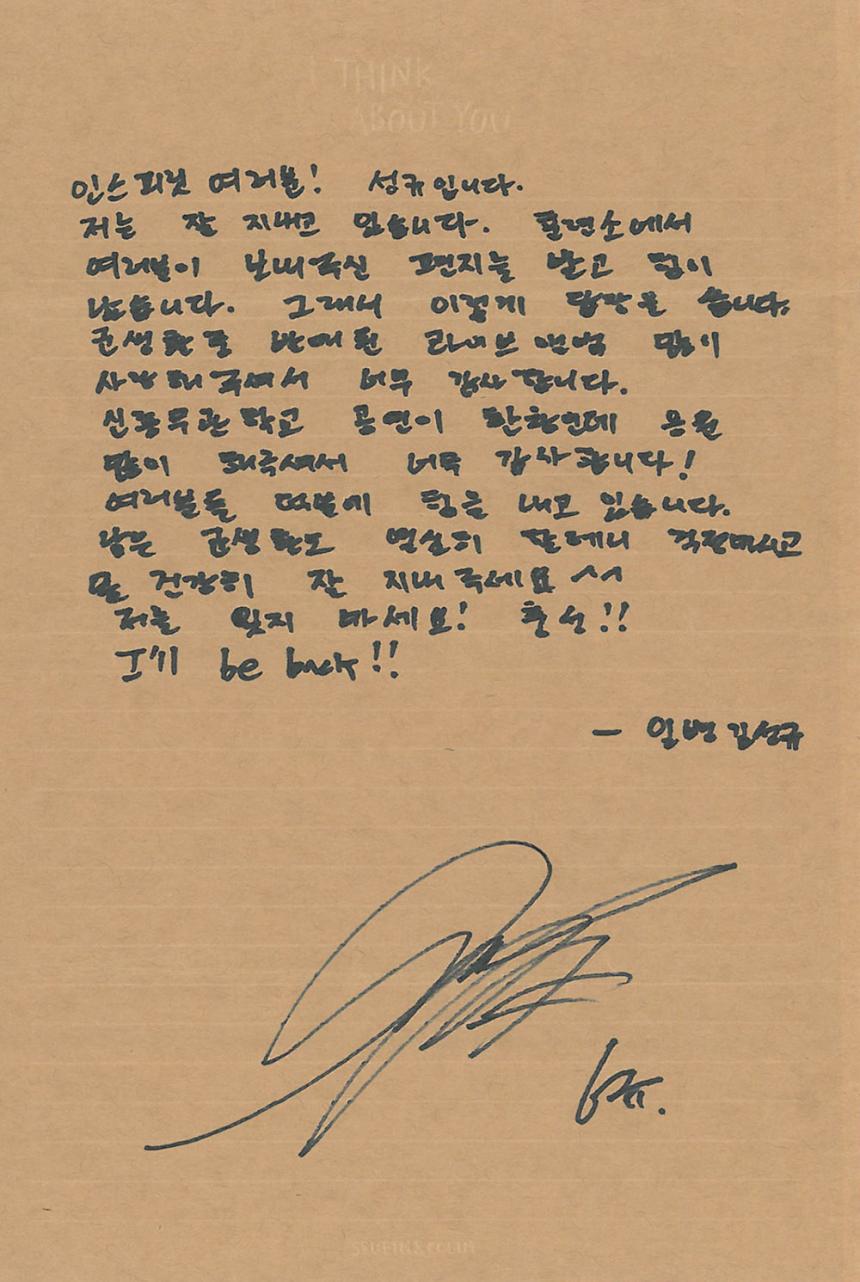 I THINK
ABOUT YOU
인스피릿 여러분! 성규입니다.
저는 잘 지내고 있습니다. 훈련소에서
여러분이 보내주신 편지를 받고 힘이
났습니다. 그래서 이렇게 답장을 씁니다.
군생활 중 발매된 라이브 앨범 많이
사랑해주셔서 너무 감사합니다.
신흥무관학교 공연이 한창인데 응원
많이 해주셔서 너무 감사합니다!
여러분들 덕분에 힘을 내고 있습니다.
남은 군생활도 열심히 할테니 걱정마시고
몸 건강히 잘 지내주세요 ^^
저를 잊지 마세요! 충성!!
I'll be back!!
- 일병 김성규